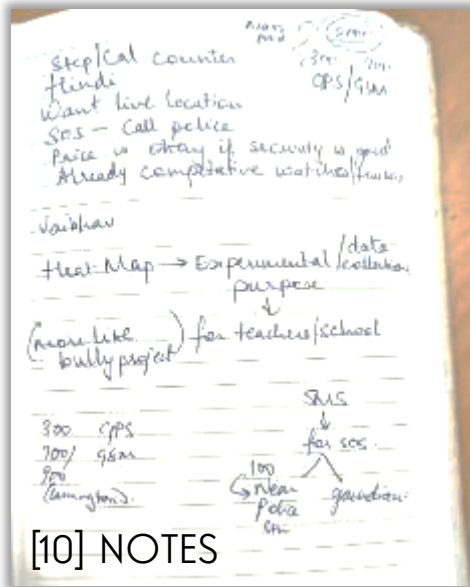 2mm
GPS/GSM
Step/Cal counter
Hindi
Want live location
SOS - Call police
Price is okay if security is good
Already competative watches/
Vaibhav
Heat Map → Experimental/data
collection
purpose
↓
(more like
bully project) for teachers/school
SMS
↓
for sos.
300 GPS
700/ GSM
900
100
↳ Near
Police
guardian
[10] NOTES